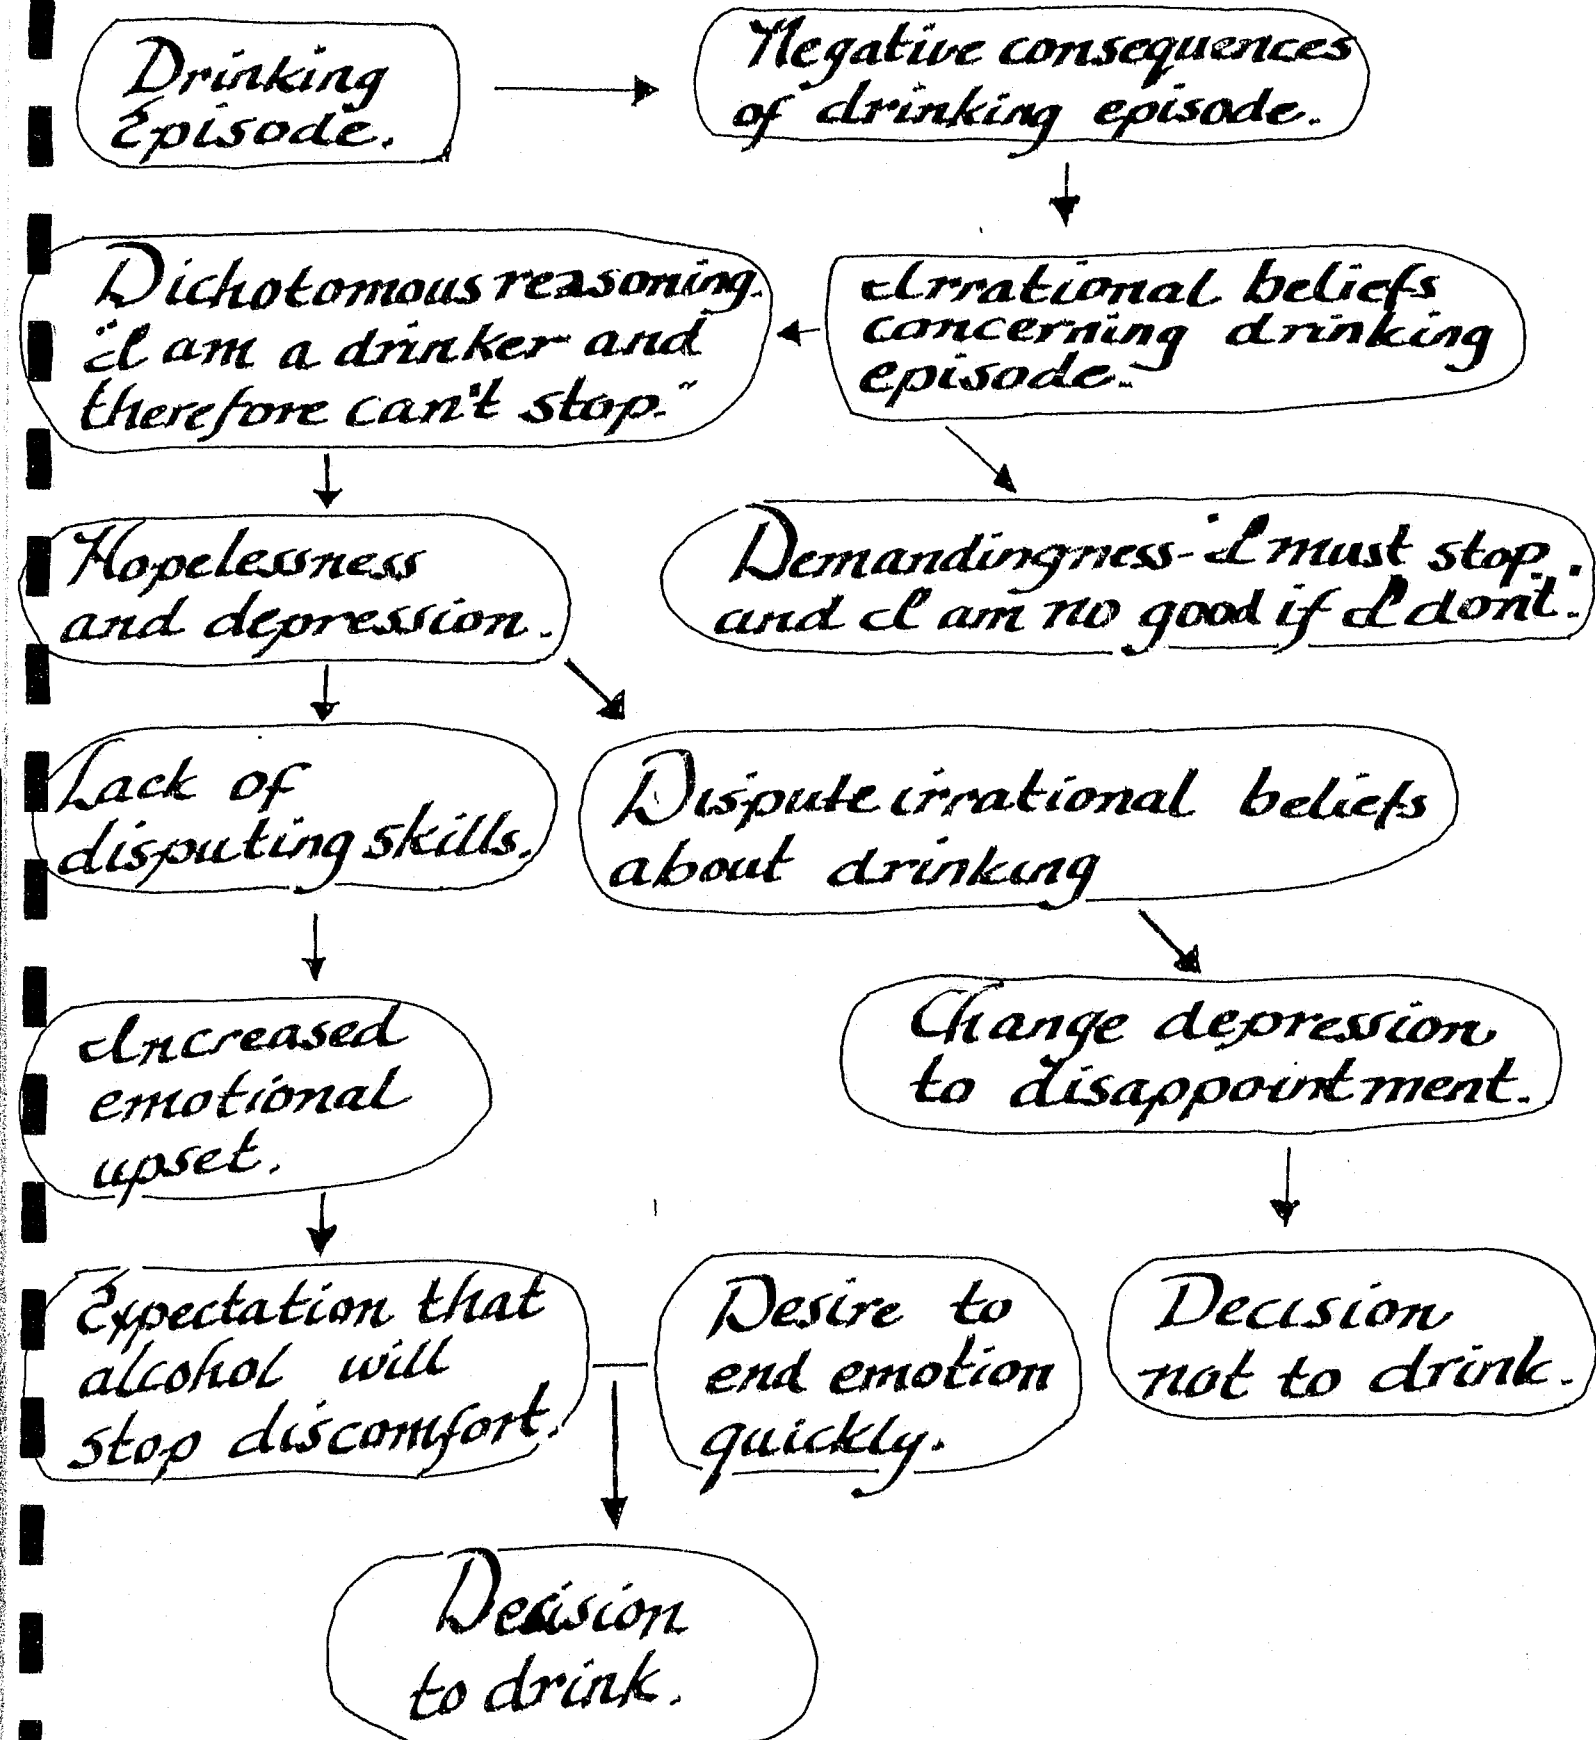 Drinking
Episode.
Negative consequences
of drinking episode.
Dichotomous reasoning.
"I am a drinker and
therefore can't stop."
Irrational beliefs
concerning drinking
episode.
Hopelessness
and depression.
Demandingness - I must stop
and I am no good if I don't.
Lack of
disputing skills.
Dispute irrational beliefs
about drinking
Increased
emotional
upset.
Change depression
to disappointment.
Expectation that
alcohol will
stop discomfort.
Desire to
end emotion
quickly.
Decision
not to drink.
Decision
to drink.